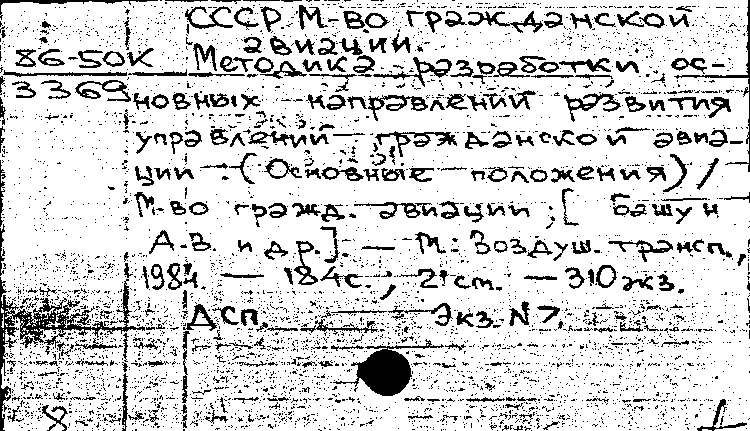 СССР. М-во гражданской
авиации.
86-50К Методика разработки ос-
3369 новных направлений развития
управлений гражданской авиа-
ции : (Основные положения) /
М-во гражд. авиации ; [Башун
А.В. и др.]. — М.: Воздуш. трансп.,
1984. — 184с. ; 21 см. — 310 экз.
ДСП. Экз. N 7.